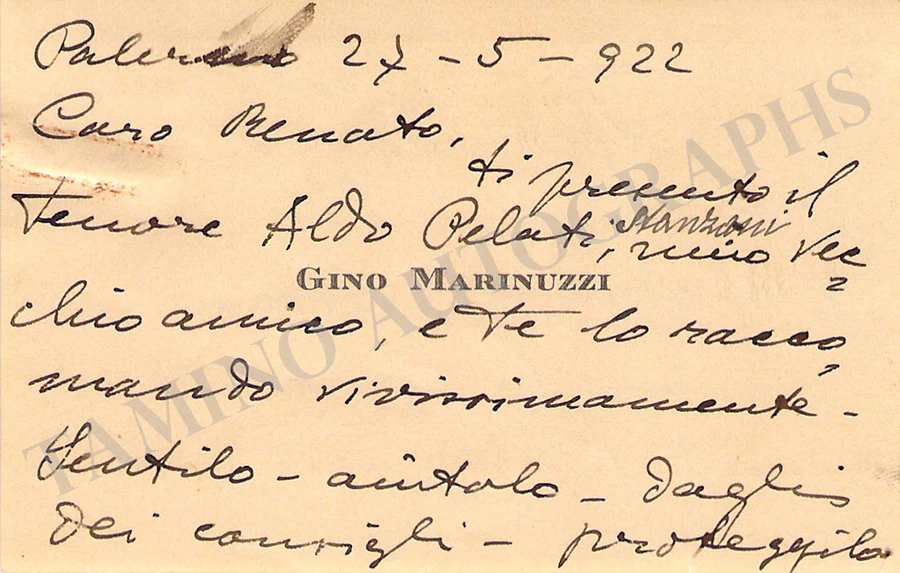 Palermo 27 - 5 - 922
Caro Renato,
ti presento il
Tenore Aldo Pelati, Stanzani mio vec=
GINO MARINUZZI
chio amico, e te lo racco,
mando vivissimamente -
Sentilo - aiutalo - daglis
dei consigli - proteggilo
TAMINO AUTOGRAPHS